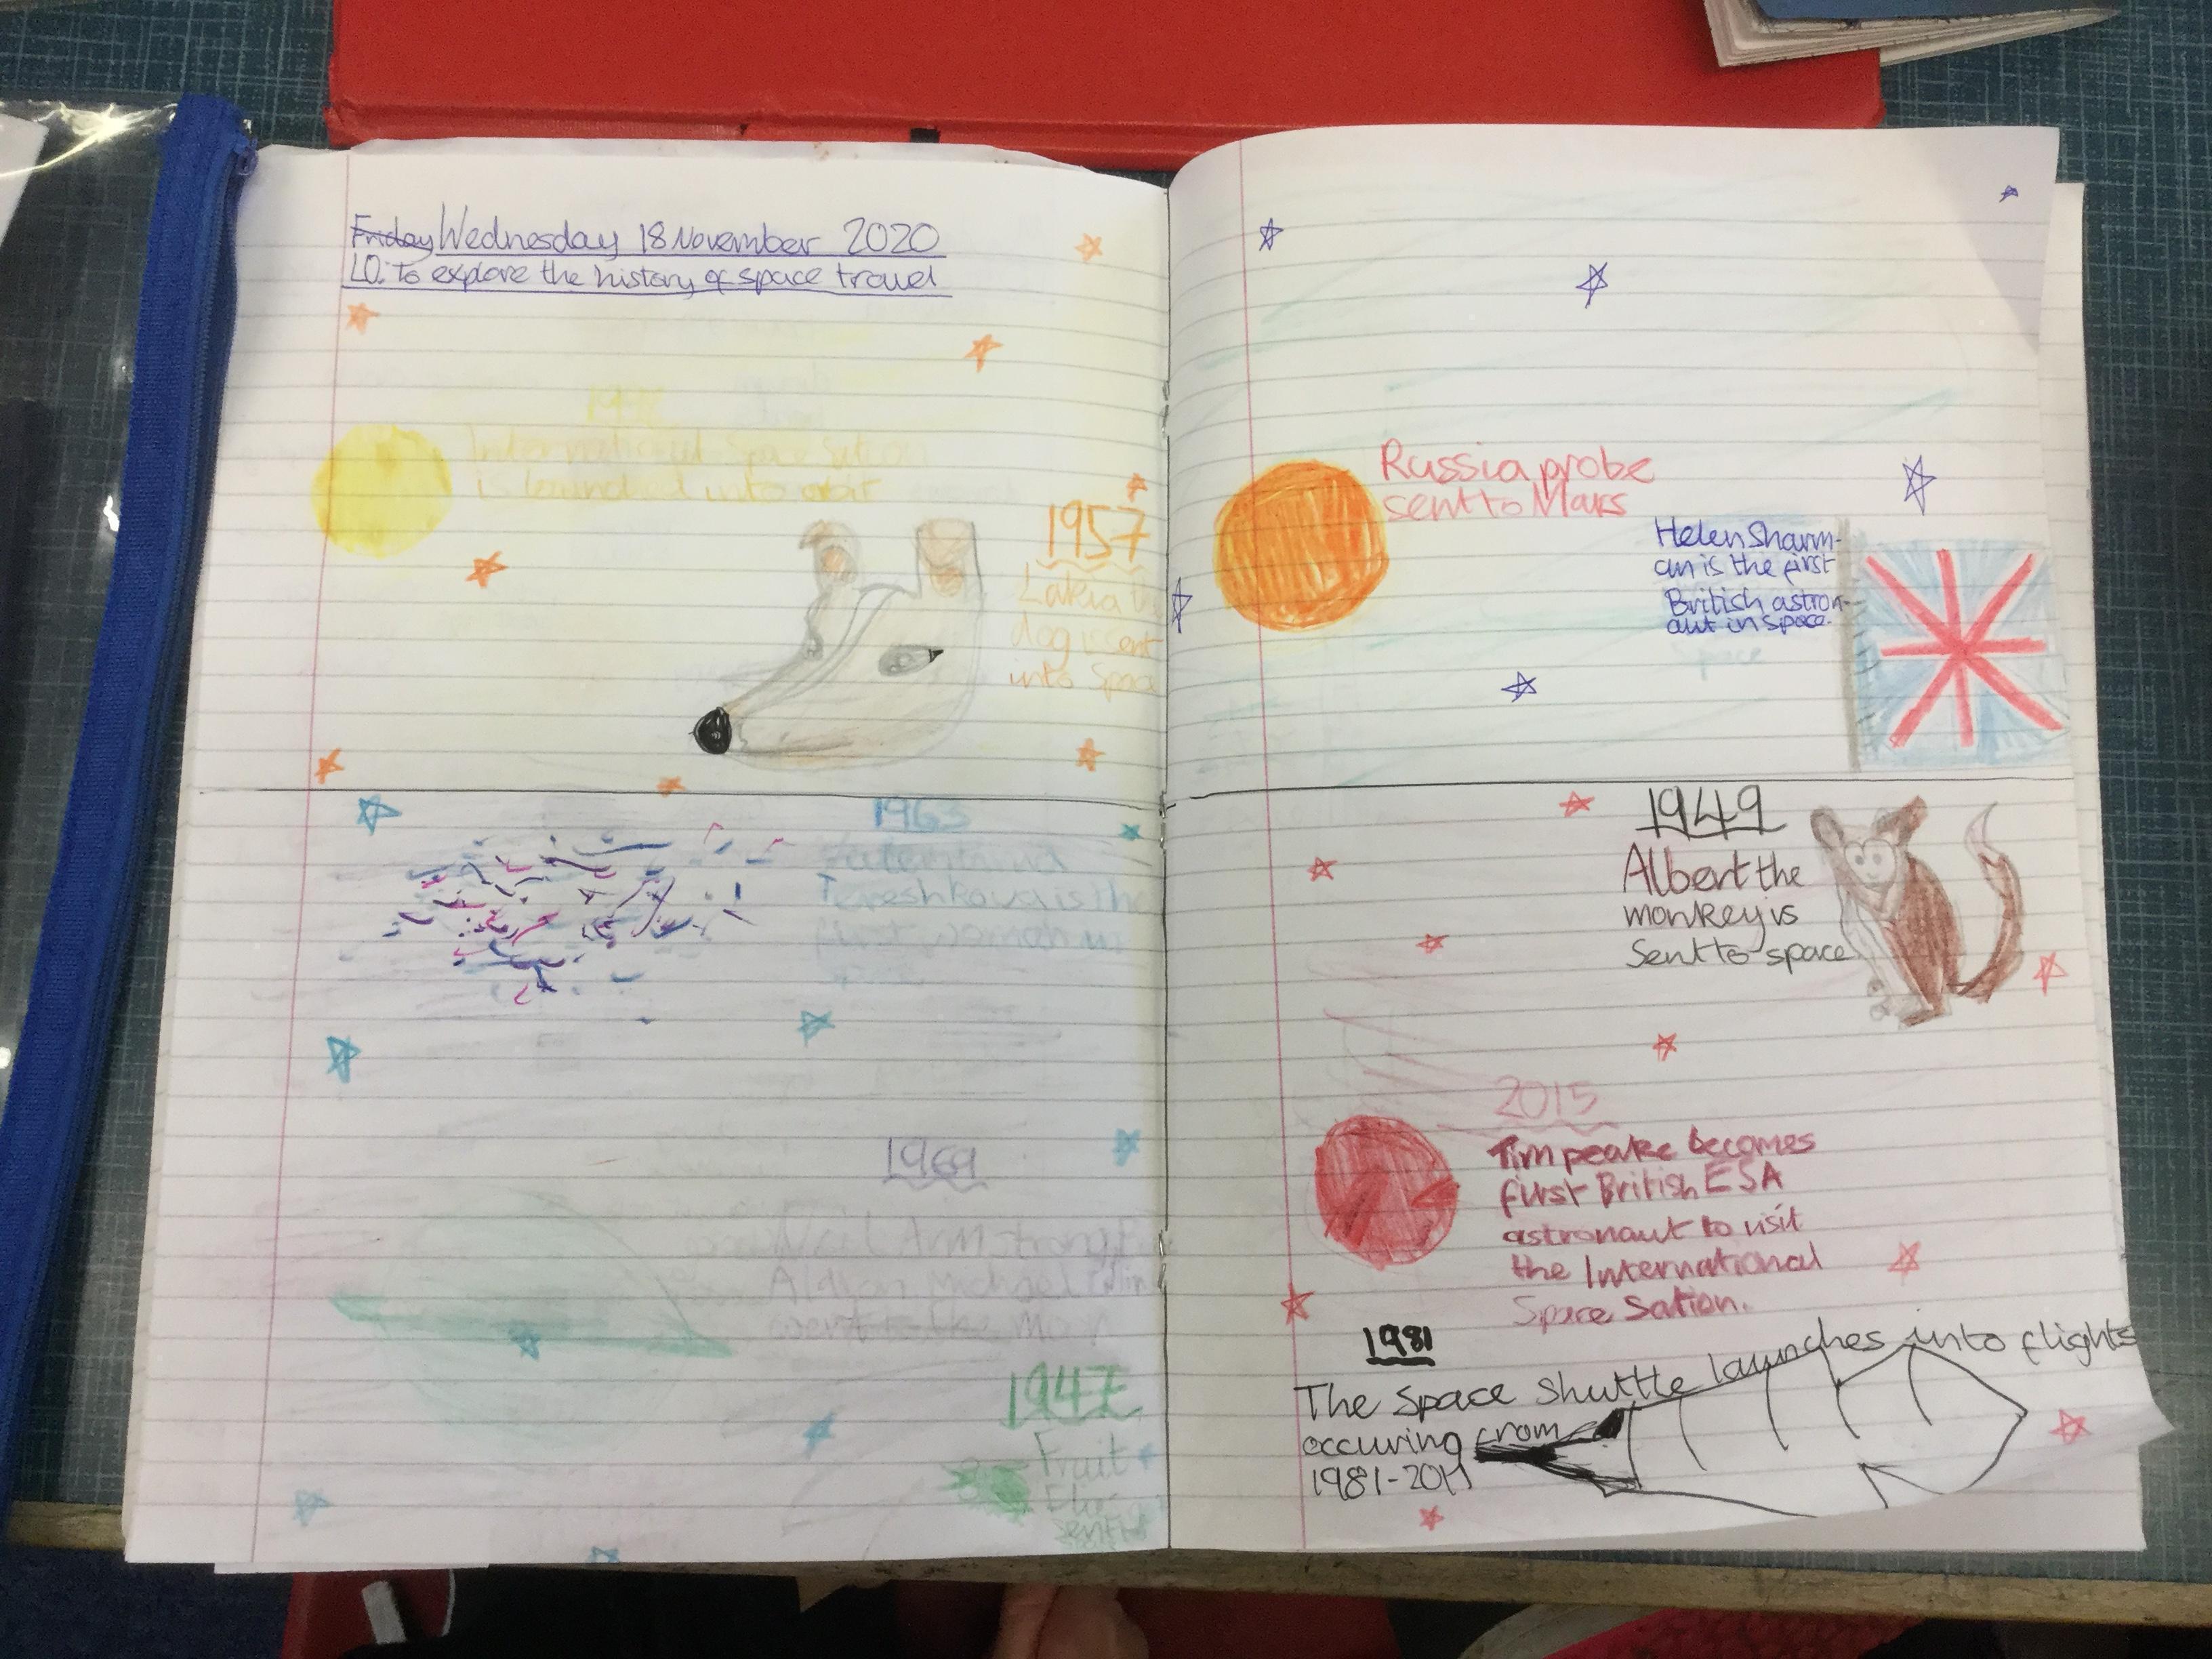 Friday Wednesday 18 November 2020
LO: To explore the history of space travel
International Space Sation
is launched into orbit
1957
Lakia the
dog is sent
into Space
1963
Tereshkova is the
first woman in
1969
Neil Armstrong,
Aldrin Michael
went to the moon
1947
Fruit
flies
sent to
Russia probe
sent to Mars
Helen Sharm-
an is the first
British astron-
aut in space.
Space
1949
Albert the
monkey is
Sent to space
2015
Tim peake becomes
first British ESA
astronaut to visit
the International
Space Sation.
1981
The Space Shuttle launches into flights
occuring from
1981-2011